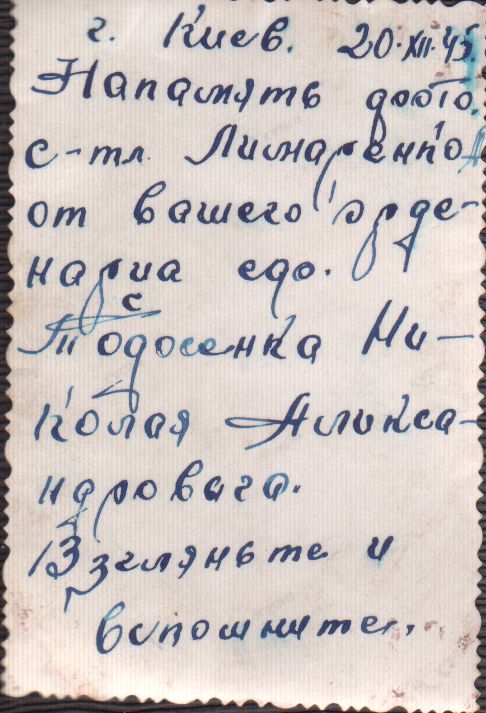 г. Киев. 20.XII.45.
Напамять фото.
с-тл. Лимаренко
от вашего орде-
нарца
Тодосенка Ни-
колая Аликса-
ндровича.
Взгляньте и
вспомните.